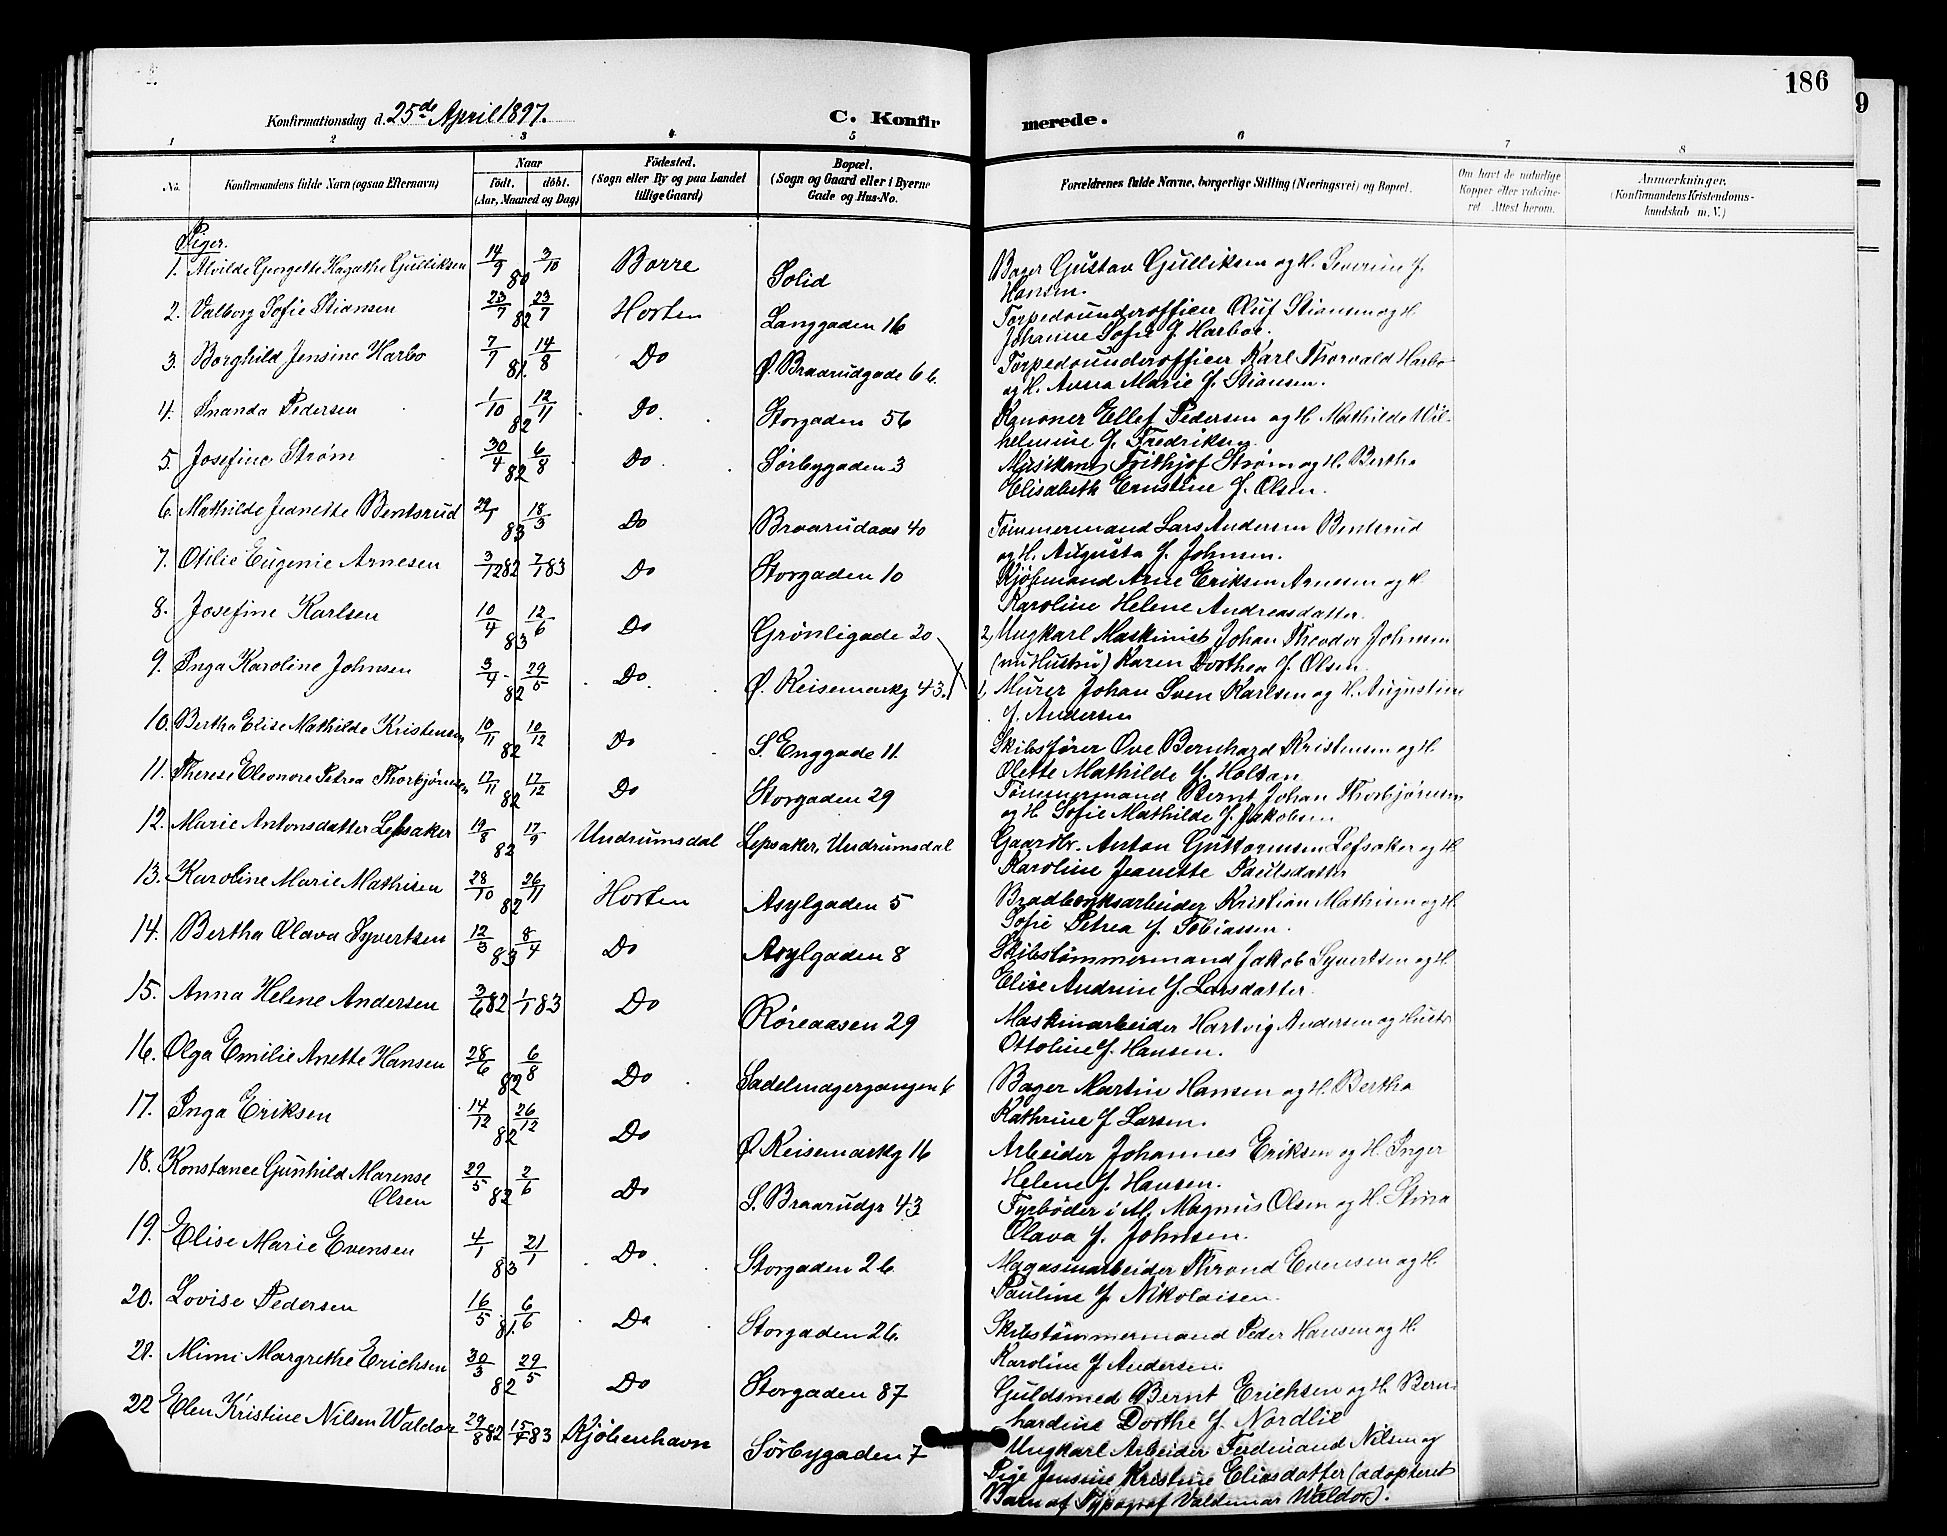 186
9
Konfirmationsdag d. 25de April 1897.
C. Konfirmerede.
1 2 3 4 5 6 7 8
No.
Konfirmandens fulde Navn (ogsaa Efternavn)
Naar
født. døbt.
(Aar, Maaned og Dag)
Fødested.
(Sogn eller By og paa Landet tillige Gaard)
Bopæl.
(Sogn og Gaard eller i Byerne Gade og Hus-No.
Forældrenes fulde Navne, borgerlige Stilling (Næringsvei) og Bopæl.
Om havt de naturlige Kopper eller vakcineret. Attest herom.
Anmærkninger.
(Konfirmandens Kristendomskundskab m. V.)
Piger.
1. Alvilde Georgette Hagathe Gulliksen 14/9 3/10 80 Borre Solid Bager Gustav Gulliksen og H. Severine f.
Hansen.
2. Valborg Sofie Stiansen 23/7 23/7 82 Horten Langgaden 16 Torpedounderofficer Oluf Stiansen og H
Johanne Sofie f. Harboe.
3. Borghild Jensine Harbo 7/7 14/8 81. Do Ø. Braarudgade 66. Torpedounderofficer Karl Thorvald Harbo
og H. Anna Marie f. Stiansen.
4. Inanda Pedersen 1/10 12/11 82 Do. Storgaden 56 Kanoner Ellef Pedersen og H Mathilde Wil-
helmine f. Fredriksen
5. Josefine Strøm 30/4 6/8 82 Do Sørbygaden 3 Musikant Frithjof Strøm og H. Bertha
Elisabeth Ernstine f. Olsen.
6. Mathilde Jeanette Bentsrud 29/1 18/3 83 Do Braarudaas 40 Tømmermand Lars Andersen Bentsrud
og H. Augusta f. Johnsen.
7. Otilie Eugenie Arnesen 3/12 82 7/1 83 Do Storgaden 10 Kjøbmand Arne Eriksen Arnesen og H
Karoline Helene Andreasdatter.
8. Josefine Karlsen 10/4 12/6 83 Do Grønligade 20 2, Ungkarl Maskinist Johan Theodor Johnsen
(nu Hustru) Karen Dorthea f. Olsen.
9. Inga Karoline Johnsen 3/4 29/5 82 Do. Ø. Keisemarkg 43. 1, Murer Johan Sven Karlsen og H. Augustine
f. Andersen
10. Bertha Elise Mathilde Kristensen 10/11 10/12 82 Do S. Enggade 11. Skibsfører Ove Bernhard Kristensen og H.
Olette Mathilde f. Holtan
11. Therese Eleonore Petrea Thorbjørnsen 17/11 17/12 82 Do Storgaden 29 Tømmermand Bernt Johan Thorbjørnsen
og H Sofie Mathilde f. Jakobsen
12. Marie Antonsdatter Lefsaker 19/8 17/9 82 Undrumsdal Lepsaker, Undrumsdal Gaardbr. Anton Guttormsen Lefsaker og H.
Karoline Jeanette Paulsdatter
13. Karoline Marie Mathisen 28/10 26/11 82 Horten Asylgaden 5 Bradbænksarbeider Kristian Mathisen og H.
Sofie Petrea f. Tobiassen.
14. Bertha Olava Syvertsen 12/3 8/4 83 Do Asylgaden 8 Skibstømmermand Jakob Syvertsen og H.
Elise Andrine f. Larsdatter.
15. Anna Helene Andersen 3/6 82 1/1 83 Do Røreaasen 29 Maskinarbeider Hartvig Andersen og Hustr
Ottoline f. Hansen.
16. Olga Emilie Anette Hansen 28/6 6/8 82 Do Sadelmagergangen 6 Bager Martin Hansen og H. Bertha
Kathrine f Larsen.
17. Inga Eriksen 14/12 26/12 82 Do Ø Keisemarkg 16 Arbeider Johannes Eriksen og H. Inger
Helene f. Hansen.
18. Konstance Gunhild Marense
Olsen 29/5 2/6 82 Do S. Braarudgr 43 Fyrbøder i M. Magnus Olsen og H. Stina
Olava f. Johnsen.
19. Elise Marie Evensen 4/1 21/1 83 Do. Storgaden 26 Magasinarbeider Thrond Evensen og H.
Pauline f. Nikolaisen.
20. Lovise Pedersen 16/5 6/6 81. Do Storgaden 26. Skibstømmermand Peder Hansen og H.
Karoline f Andersen.
21. Mimi Margrethe Erichsen 30/3 29/5 82 Do Storgaden 87 Guldsmed Bernt Erichsen og H. Bern-
hardine Dorthe f. Nordlie
22 Elen Kristine Nilsen Waldor 29/8 82 15/4 83 Kjøbenhavn Sørbygaden 7 Ungkarl Arbeider Ferdinand Nilsen og
Pige Jensine Kristine Eliasdatter (adopteret
Barn af Typograf Valdemar Waldor).